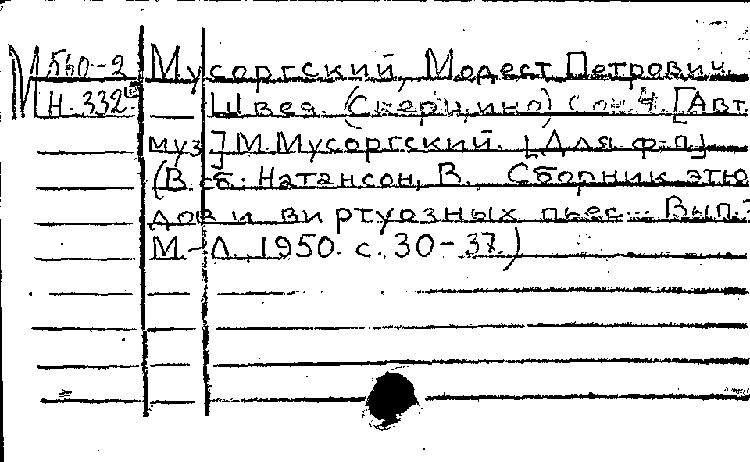 М 560-2 Мусоргский, Модест Петрович.
Н. 332 Швея. (Скерцино) Соч. [Авт.
муз.] М. Мусоргский. [Для ф-п.]
(В сб.: Натансон, В. Сборник этю
дов и виртуозных пьес... Вып.
М.-Л., 1950. с. 30-37.)